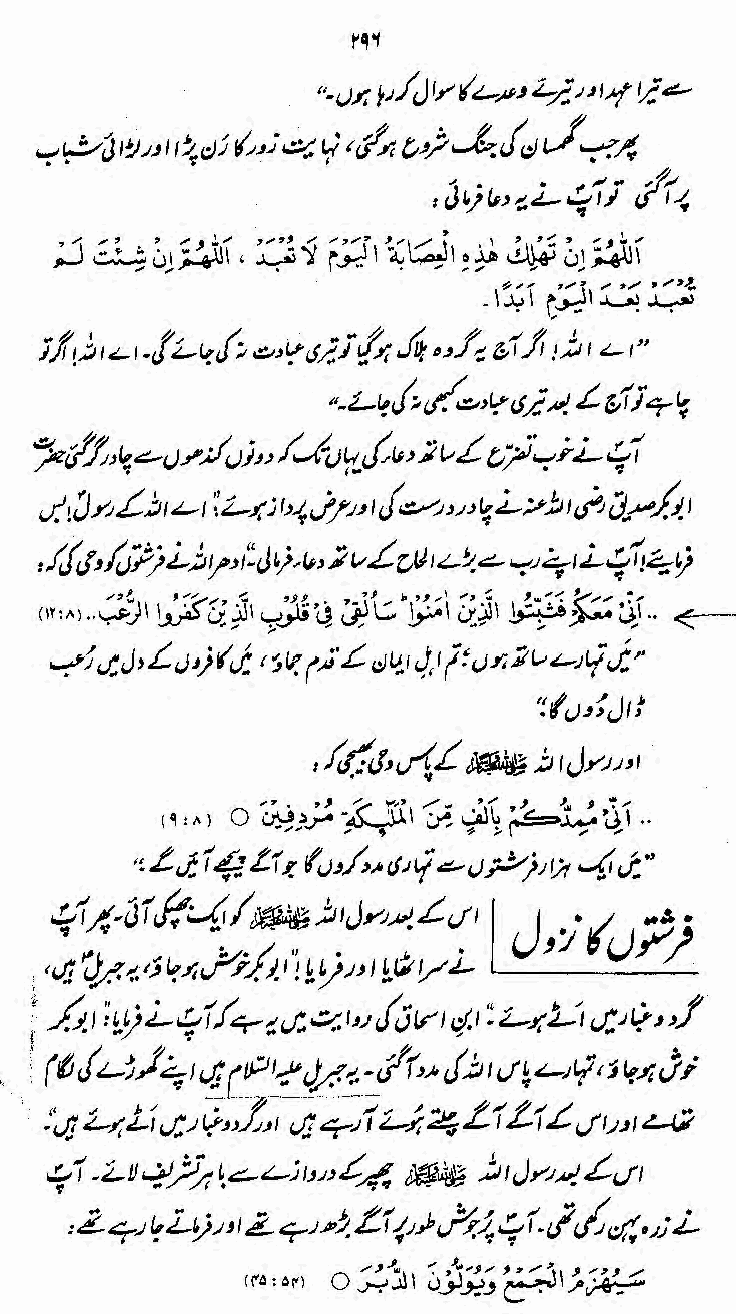 ۲۹۶
سے تیرا عہد اور تیرے وعدے کا سوال کر رہا ہوں۔“
پھر جب گھمسان کی جنگ شروع ہوگئی، نہایت زور کا رَن پڑا اور لڑائی شباب
پر آگئی تو آپؐ نے یہ دعا فرمائی :
اَللّٰهُمَّ اِنْ تَهْلِكْ هٰذِهِ الْعِصَابَةُ الْيَوْمَ لَا تُعْبَدْ ، اَللّٰهُمَّ اِنْ شِئْتَ لَمْ
تُعْبَدْ بَعْدَ الْيَوْمِ اَبَدًا ۔
”اے اللہ! اگر آج یہ گروہ ہلاک ہوگیا تو تیری عبادت نہ کی جائے گی۔ اے اللہ! اگر تو
چاہے تو آج کے بعد تیری عبادت کبھی نہ کی جائے۔“
آپؐ نے خوب تضرّع کے ساتھ دعاء کی یہاں تک کہ دونوں کندھوں سے چادر گر گئی حضرت
ابوبکر صدیق رضی اللہ عنہ نے چادر درست کی اور عرض پرداز ہوئے:”اے اللہ کے رسولؐ! بس
فرمایئے! آپؐ نے اپنے رب سے بڑے الحاح کے ساتھ دعاء فرمالی“ ادھر اللہ نے فرشتوں کو وحی کی کہ :
.. اَنِّىْ مَعَكُمْ فَثَبِّتُوا الَّذِيْنَ اٰمَنُوْا ؕ سَاُلْقِىْ فِىْ قُلُوْبِ الَّذِيْنَ كَفَرُوا الرُّعْبَ.. (۱۲:۸)
”میں تمہارے ساتھ ہوں، تم اہلِ ایمان کے قدم جماؤ، میں کافروں کے دل میں رُعب
ڈال دُوں گا۔“
اور رسول اللہ ﷺ کے پاس وحی بھیجی کہ :
.. اَنِّىْ مُمِدُّكُمْ بِاَلْفٍ مِّنَ الْمَلٰٓئِكَةِ مُرْدِفِيْنَ ○ (۹:۸)
”میں ایک ہزار فرشتوں سے تمہاری مدد کروں گا جو آگے پیچھے آئیں گے۔“
فرشتوں کا نزول
اس کے بعد رسول اللہ ﷺ کو ایک جھپکی آئی۔ پھر آپؐ
نے سر اٹھایا اور فرمایا!”ابوبکر خوش ہوجاؤ، یہ جبریلؑ ہیں،
گرد و غبار میں اَٹے ہوئے۔“ ابنِ اسحاق کی روایت میں یہ ہے کہ آپؐ نے فرمایا:”ابوبکر
خوش ہوجاؤ، تمہارے پاس اللہ کی مدد آگئی۔ یہ جبریل علیہ السّلام ہیں اپنے گھوڑے کی لگام
تھامے اور اس کے آگے آگے چلتے ہُوئے آرہے ہیں اور گرد و غبار میں اَٹے ہوئے ہیں“۔
اس کے بعد رسول اللہ ﷺ چھپر کے دروازے سے باہر تشریف لائے۔ آپؐ
نے زرہ پہن رکھی تھی۔ آپؐ پُرجوش طور پر آگے بڑھ رہے تھے اور فرماتے جا رہے تھے :
سَيُهْزَمُ الْجَمْعُ وَيُوَلُّوْنَ الدُّبُرَ ○ (۴۵:۵۴)